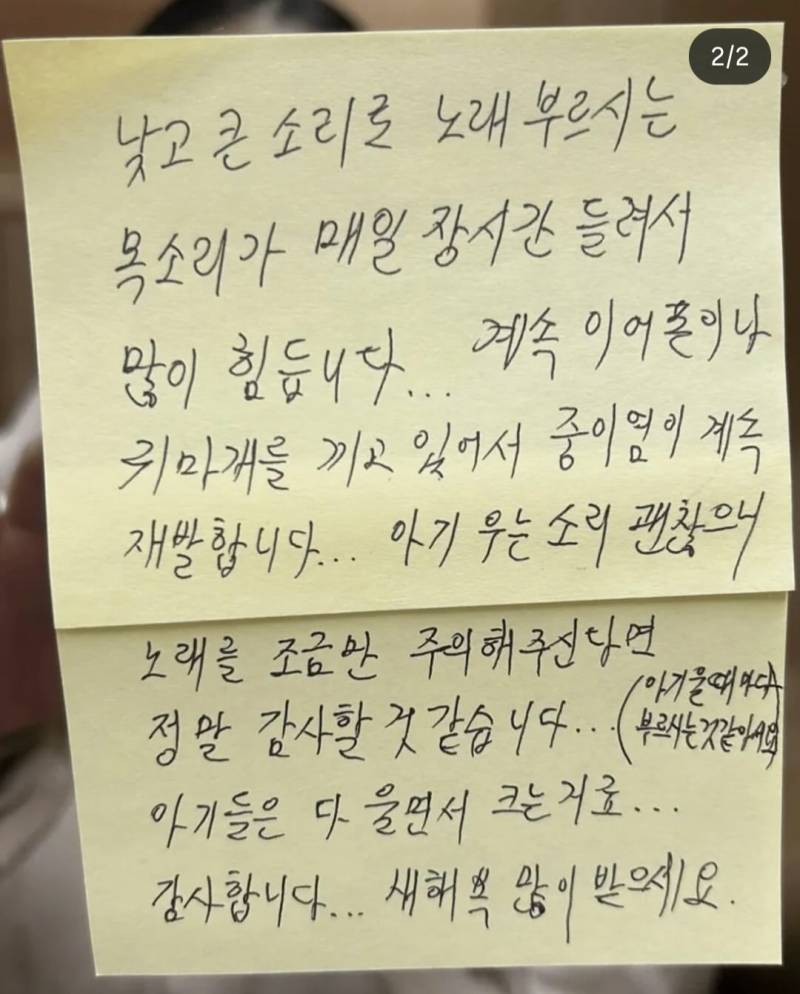 2/2
낮고 큰 소리로 노래 부르시는
목소리가 매일 장시간 들려서
많이 힘듭니다... 계속 이어폰이나
귀마개를 끼고 있어서 중이염이 계속
재발합니다... 아기 우는 소리 괜찮으니
노래를 조금만 주의해주신다면
정말 감사할 것 같습니다... (아기 울 때마다
부르시는 것 같아서요)
아기들은 다 울면서 크는거죠...
감사합니다... 새해 복 많이 받으세요.